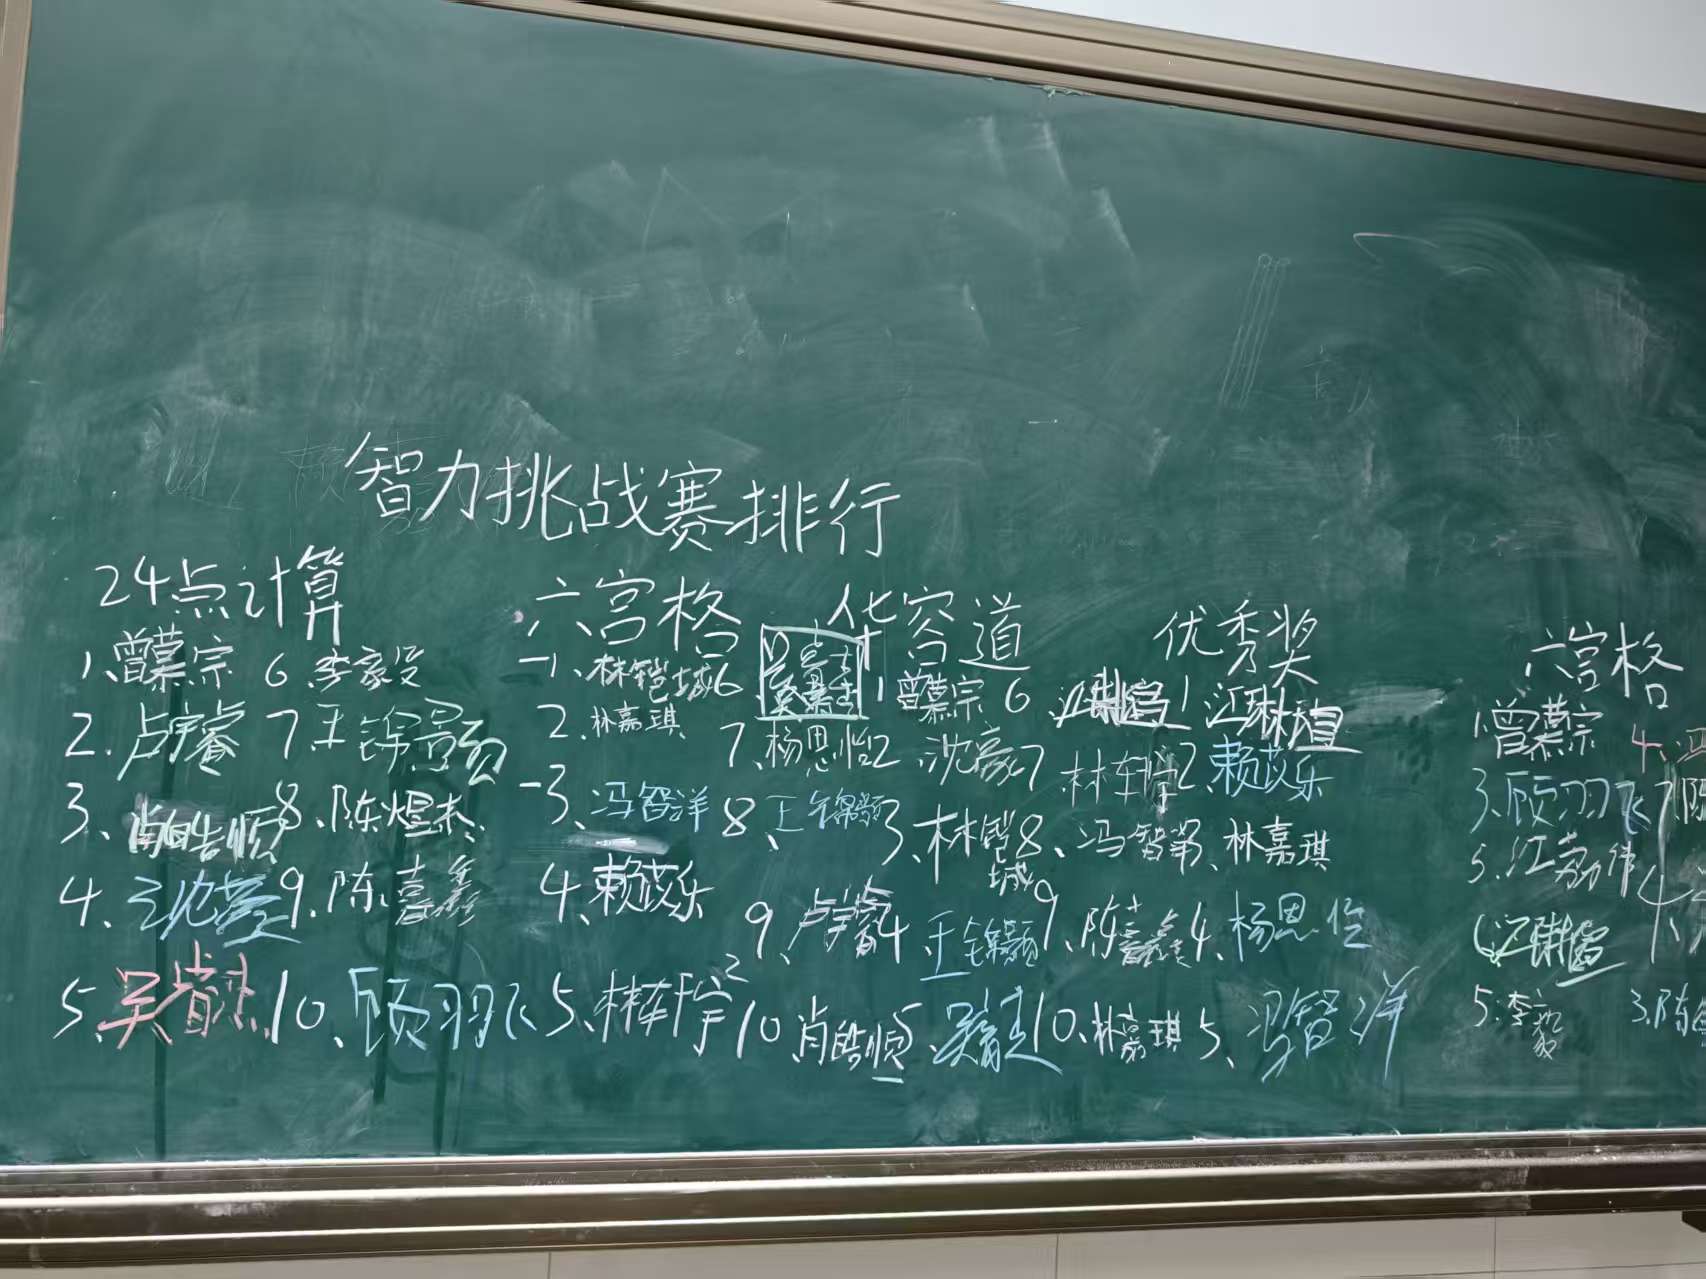 智力挑战赛排行
24点计算
1、曾慕宗 6.李豪
2.卢宇睿 7 王锦颢
3、肖皓顺 8、陈煜杰
4、沈 9、陈嘉鑫
5、吴 10、顾羽飞
六宫格
1、林铠城 6
2.林嘉琪 7、杨思怡
3、冯智洋 8、王锦颢
4、赖苡乐 9、卢宇睿
5、林车宇 10、肖皓顺
华容道
1 曾慕宗 6
2 沈豪 7 林车宇
3、林铠城 8、冯智洋
4 王锦颢 9、陈嘉鑫
5、吴 10、林嘉琪
优秀奖
1 江琳
2、赖苡乐
3、林嘉琪
4、杨思怡
5、冯智洋
六宫格
1.曾慕宗 4、
3、顾羽飞 7、陈
5、江 伟
6、江琳
5:李 3.陈